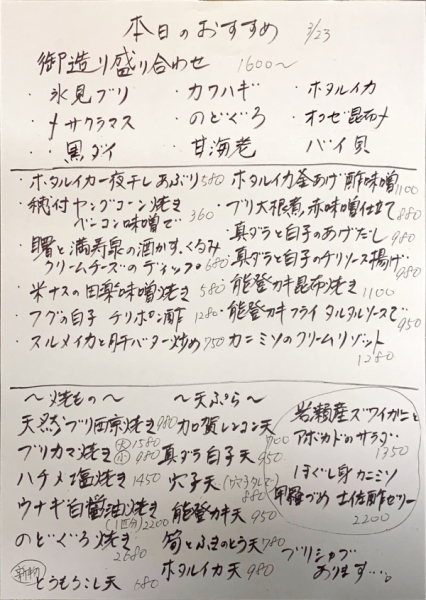 本日のおすすめ 3/23
御造り盛り合わせ 1600〜
・氷見ブリ ・カワハギ ・ホタルイカ
・サクラマス ・のどぐろ ・オコゼ昆布〆
・黒ダイ ・甘海老 ・バイ貝
・ホタルイカ一夜干しあぶり 580
・穂付ヤングコーン焼き
ベーコン味噌で 360
・曙と満寿泉の酒かす、くるみ
クリームチーズのディップ 680
・米ナスの田楽味噌焼き 580
・フグの白子 チリポン酢 1280
・スルメイカと肝バター炒め 750
・ホタルイカ釜あげ 酢味噌 1100
・ブリ大根煮、赤味噌仕立て 880
・真ダラと白子のあげだし 980
・真ダラと白子のチリソース揚げ 980
・能登カキ昆布焼き 1100
・能登カキフライ タルタルソースで 950
・カニミソのクリームリゾット 1280
〜焼もの〜
天然ブリ西京焼き 980
ブリカマ焼き 大1580 小980
ハチメ塩焼き 1450
ウナギ白醤油焼き
(1匹分)2200
のどぐろ焼き 2680
新物 とうもろこし天 680
〜天ぷら〜
加賀レンコン天 700
真ダラ白子天 950
穴子天(穴子タレで) 880
能登カキ天 950
筍とふきのとう天 780
ホタルイカ天 980
岩瀬産ズワイガニと
アボカドのサラダ 1350
ほぐし身 カニミソ
甲羅づめ 土佐酢ゼリー
2200
ブリシャブ
あります…。